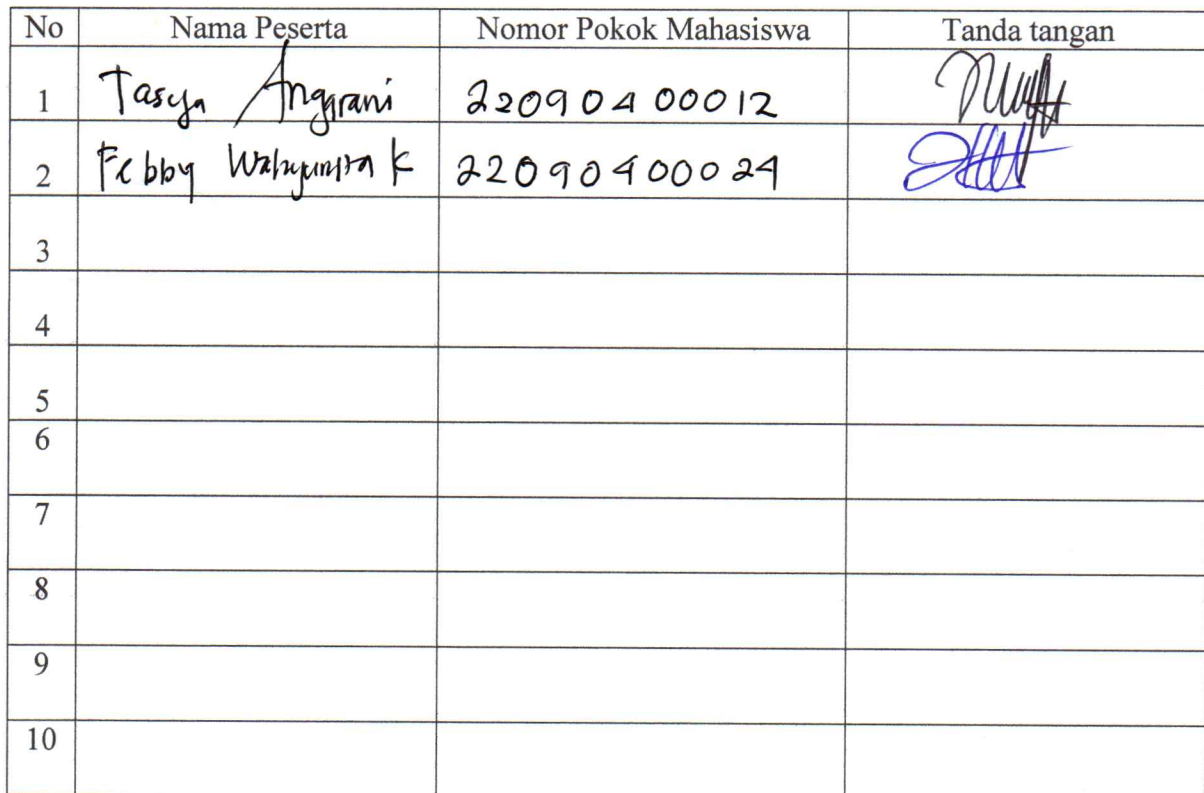 No Nama Peserta Nomor Pokok Mahasiswa Tanda tangan
1 Tasya Anggrani 22090400012
2 Febby K 22090400024
3
4
5
6
7
8
9
10